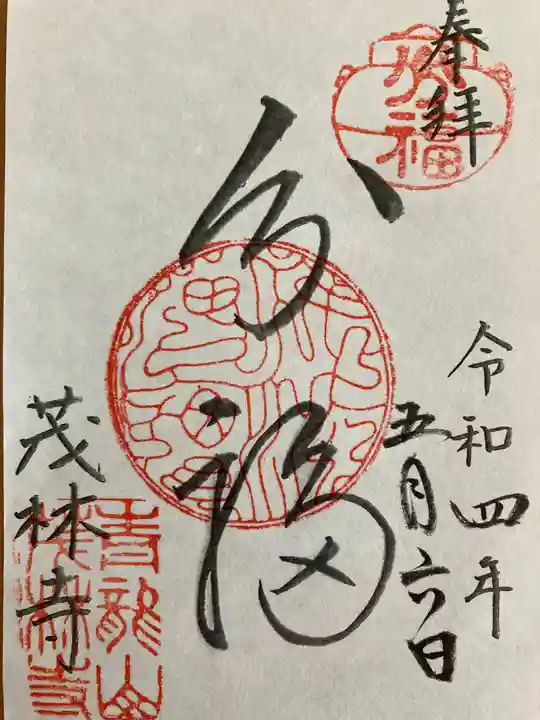 奉拝
分福
令和四年
五月六日
分福
茂林寺
青龍山
茂林寺